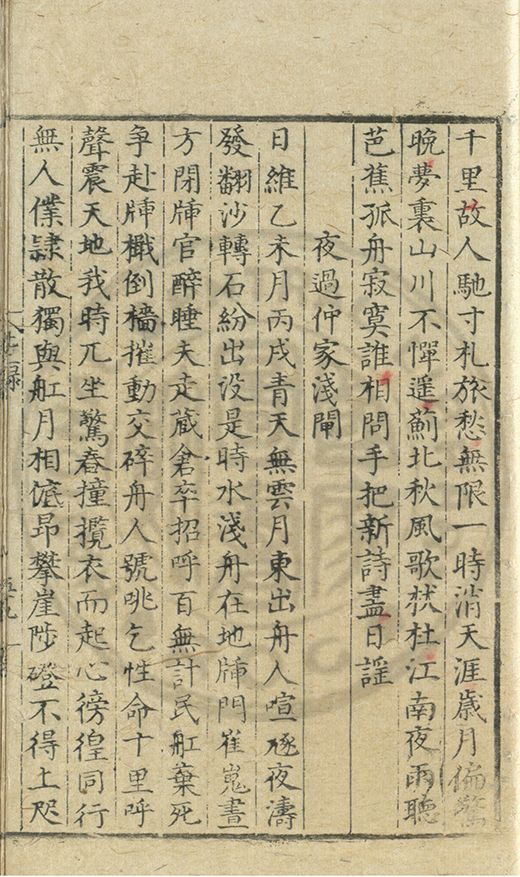 千里故人馳寸札旅愁無限一時消天涯歲月偏驚
晚夢裏山川不憚遥薊北秋風歌杕杜江南夜雨聽
芭蕉孤舟寂寞誰相問手把新詩盡日謡
夜過仲家淺閘
日維乙未月丙戌青天無雲月東出舟人喧豗夜濤
發翻沙轉石紛出没是時水淺舟在地牐門崔嵬晝
方閉牐官醉睡夫走藏倉卒招呼百無計民舡棄死
争赴牐檝倒檣摧動交碎舟人號咷乞性命十里呼
聲震天地我時兀坐驚舂撞攬衣而起心徬徨同行
無人僕隸散獨與舡月相低昂攀崖陟磴不得上咫